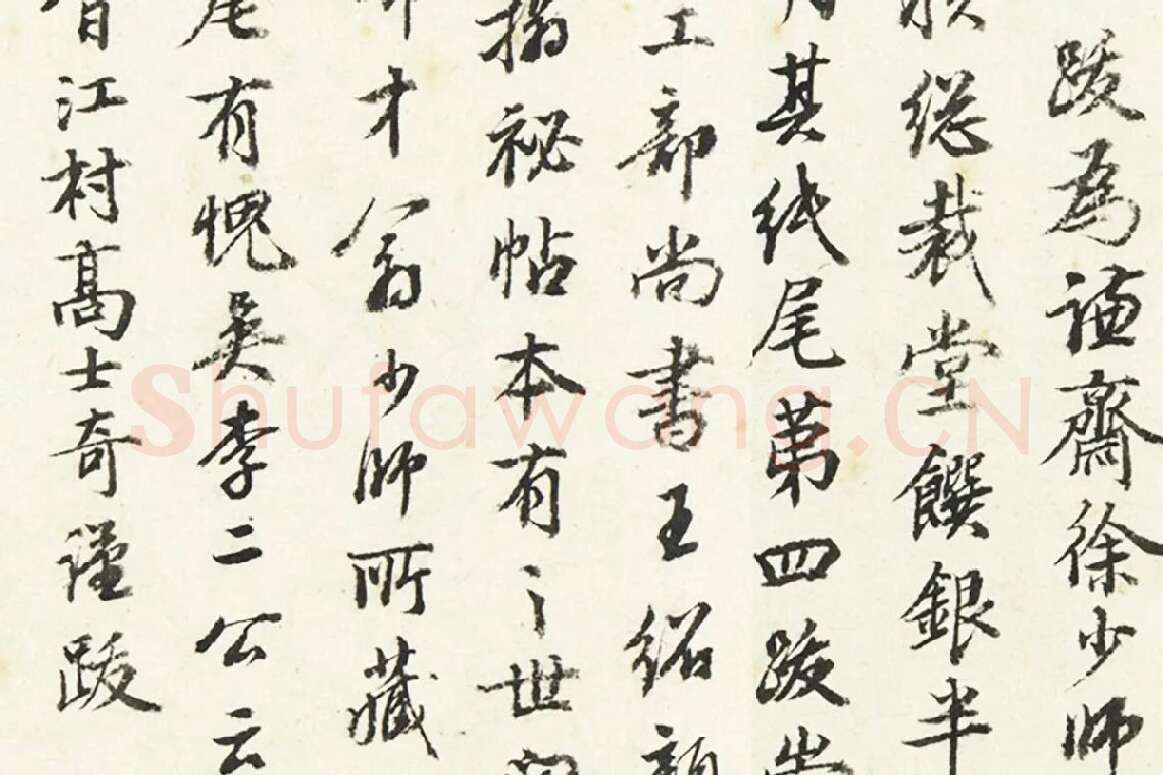 跋為謙齋徐少師
總裁堂饌銀半
其紙尾第四跋出
工部尚書王紹
搨祕帖本有之世
才翁少師所藏
尾有愧吳李二公云
江村高士奇謹跋
Shufawang.CN